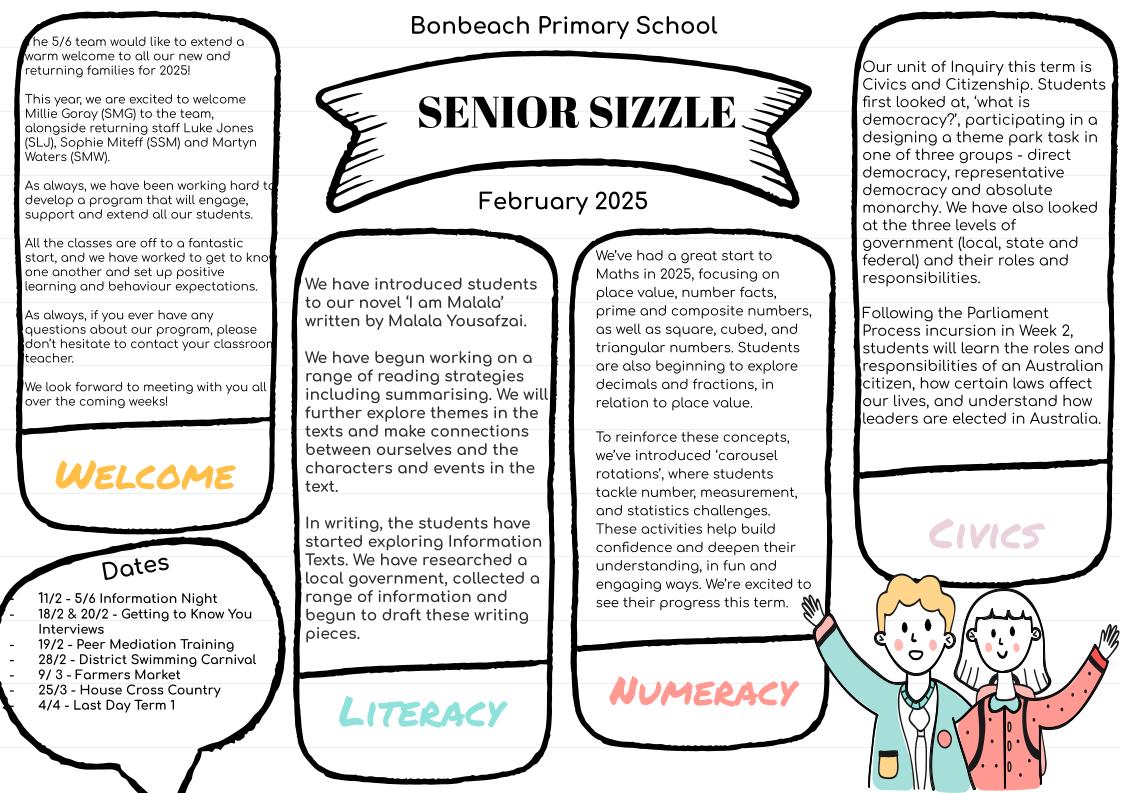 Bonbeach Primary School
SENIOR SIZZLE
February 2025
The 5/6 team would like to extend a
warm welcome to all our new and
returning families for 2025!
This year, we are excited to welcome
Millie Goray (SMG) to the team,
alongside returning staff Luke Jones
(SLJ), Sophie Miteff (SSM) and Martyn
Waters (SMW).
As always, we have been working hard to
develop a program that will engage,
support and extend all our students.
All the classes are off to a fantastic
start, and we have worked to get to know
one another and set up positive
learning and behaviour expectations.
As always, if you ever have any
questions about our program, please
don't hesitate to contact your classroom
teacher.
We look forward to meeting with you all
over the coming weeks!
WELCOME
Dates
11/2 - 5/6 Information Night
- 18/2 & 20/2 - Getting to Know You
Interviews
- 19/2 - Peer Mediation Training
- 28/2 - District Swimming Carnival
- 9/ 3 - Farmers Market
- 25/3 - House Cross Country
- 4/4 - Last Day Term 1
We have introduced students
to our novel ‘I am Malala’
written by Malala Yousafzai.
We have begun working on a
range of reading strategies
including summarising. We will
further explore themes in the
texts and make connections
between ourselves and the
characters and events in the
text.
In writing, the students have
started exploring Information
Texts. We have researched a
local government, collected a
range of information and
begun to draft these writing
pieces.
LITERACY
We’ve had a great start to
Maths in 2025, focusing on
place value, number facts,
prime and composite numbers,
as well as square, cubed, and
triangular numbers. Students
are also beginning to explore
decimals and fractions, in
relation to place value.
To reinforce these concepts,
we’ve introduced ‘carousel
rotations’, where students
tackle number, measurement,
and statistics challenges.
These activities help build
confidence and deepen their
understanding, in fun and
engaging ways. We’re excited to
see their progress this term.
NUMERACY
Our unit of Inquiry this term is
Civics and Citizenship. Students
first looked at, ‘what is
democracy?’, participating in a
designing a theme park task in
one of three groups - direct
democracy, representative
democracy and absolute
monarchy. We have also looked
at the three levels of
government (local, state and
federal) and their roles and
responsibilities.
Following the Parliament
Process incursion in Week 2,
students will learn the roles and
responsibilities of an Australian
citizen, how certain laws affect
our lives, and understand how
leaders are elected in Australia.
CIVICS